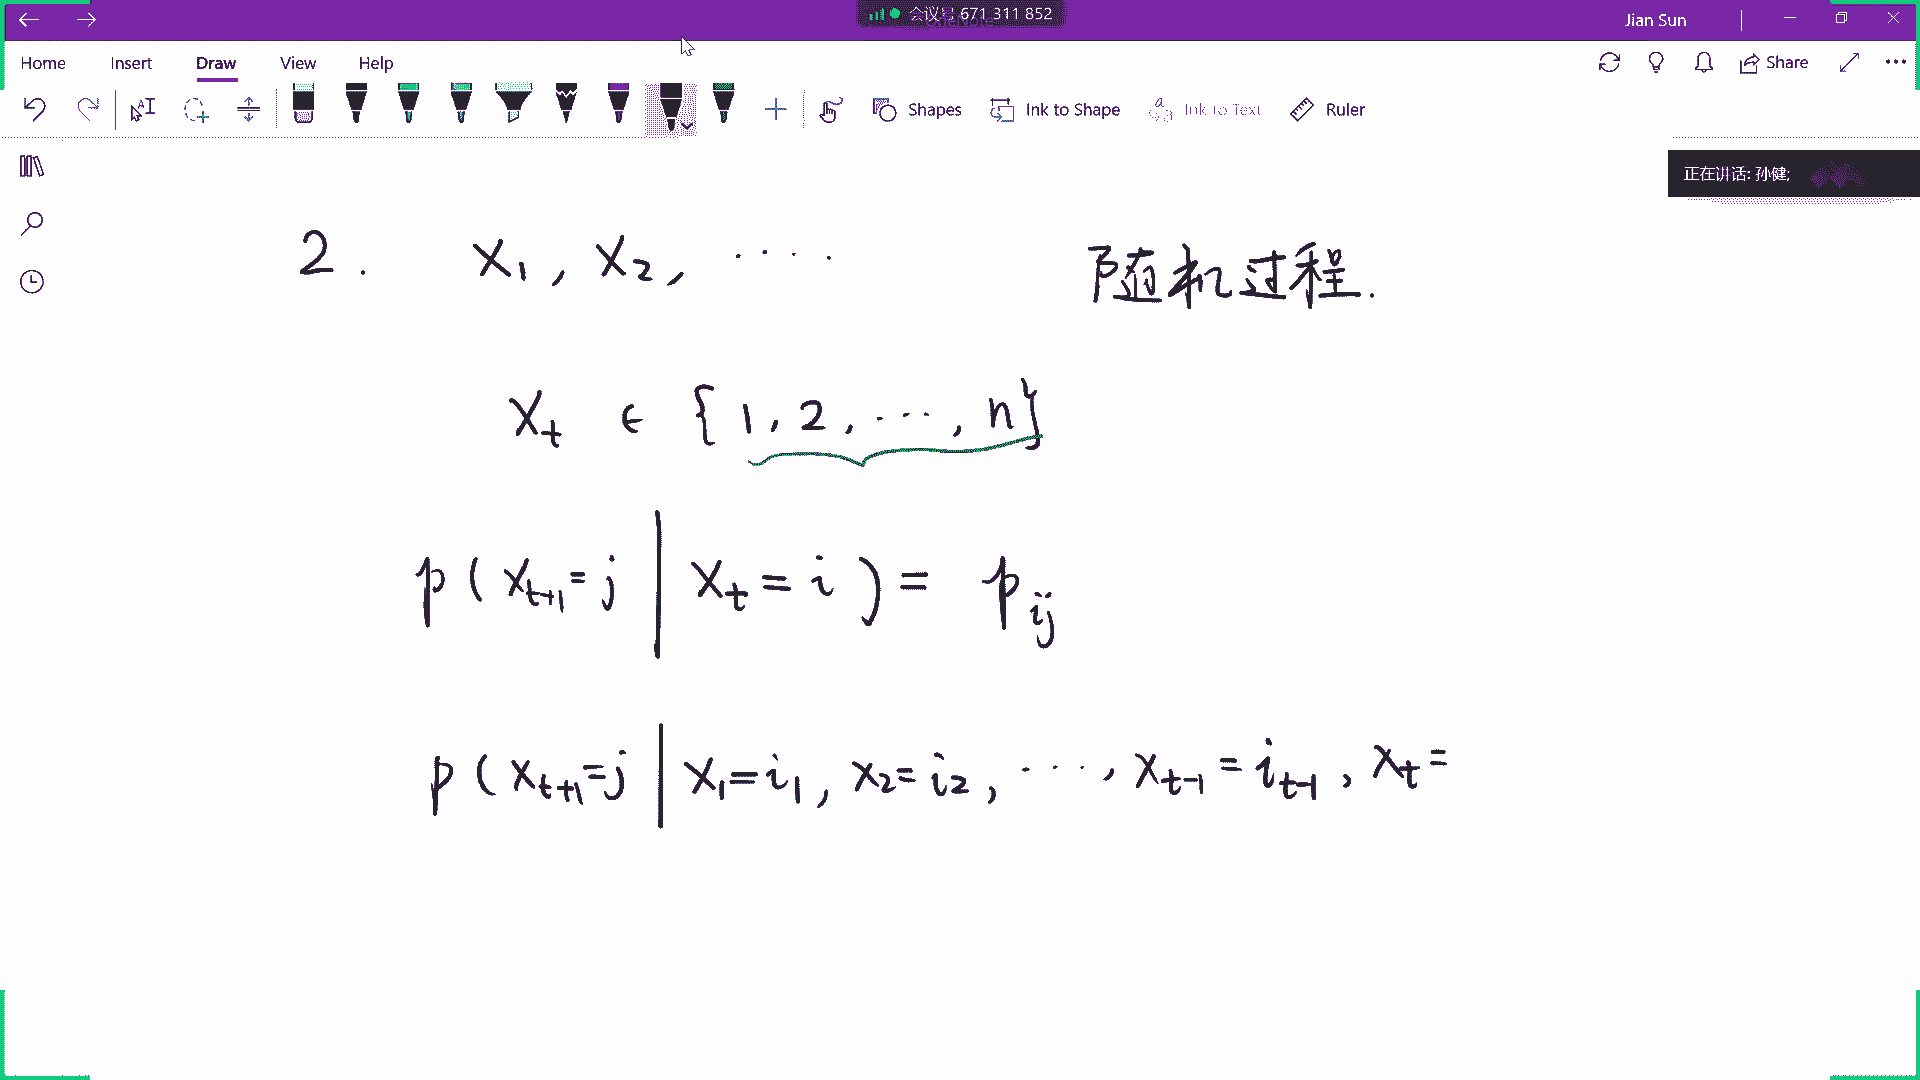 会议号 671 311 852
Jian Sun
Home Insert Draw View Help
Share
Shapes Ink to Shape Ink to Text Ruler
正在讲话: 孙健;
2. X₁, X₂, ····
随机过程.
Xₜ ∈ {1, 2, ···, n}
p(Xₜ₊₁=j | Xₜ=i) = pᵢⱼ
p(Xₜ₊₁=j | X₁=i₁, X₂=i₂, ···, Xₜ₋₁=iₜ₋₁, Xₜ=